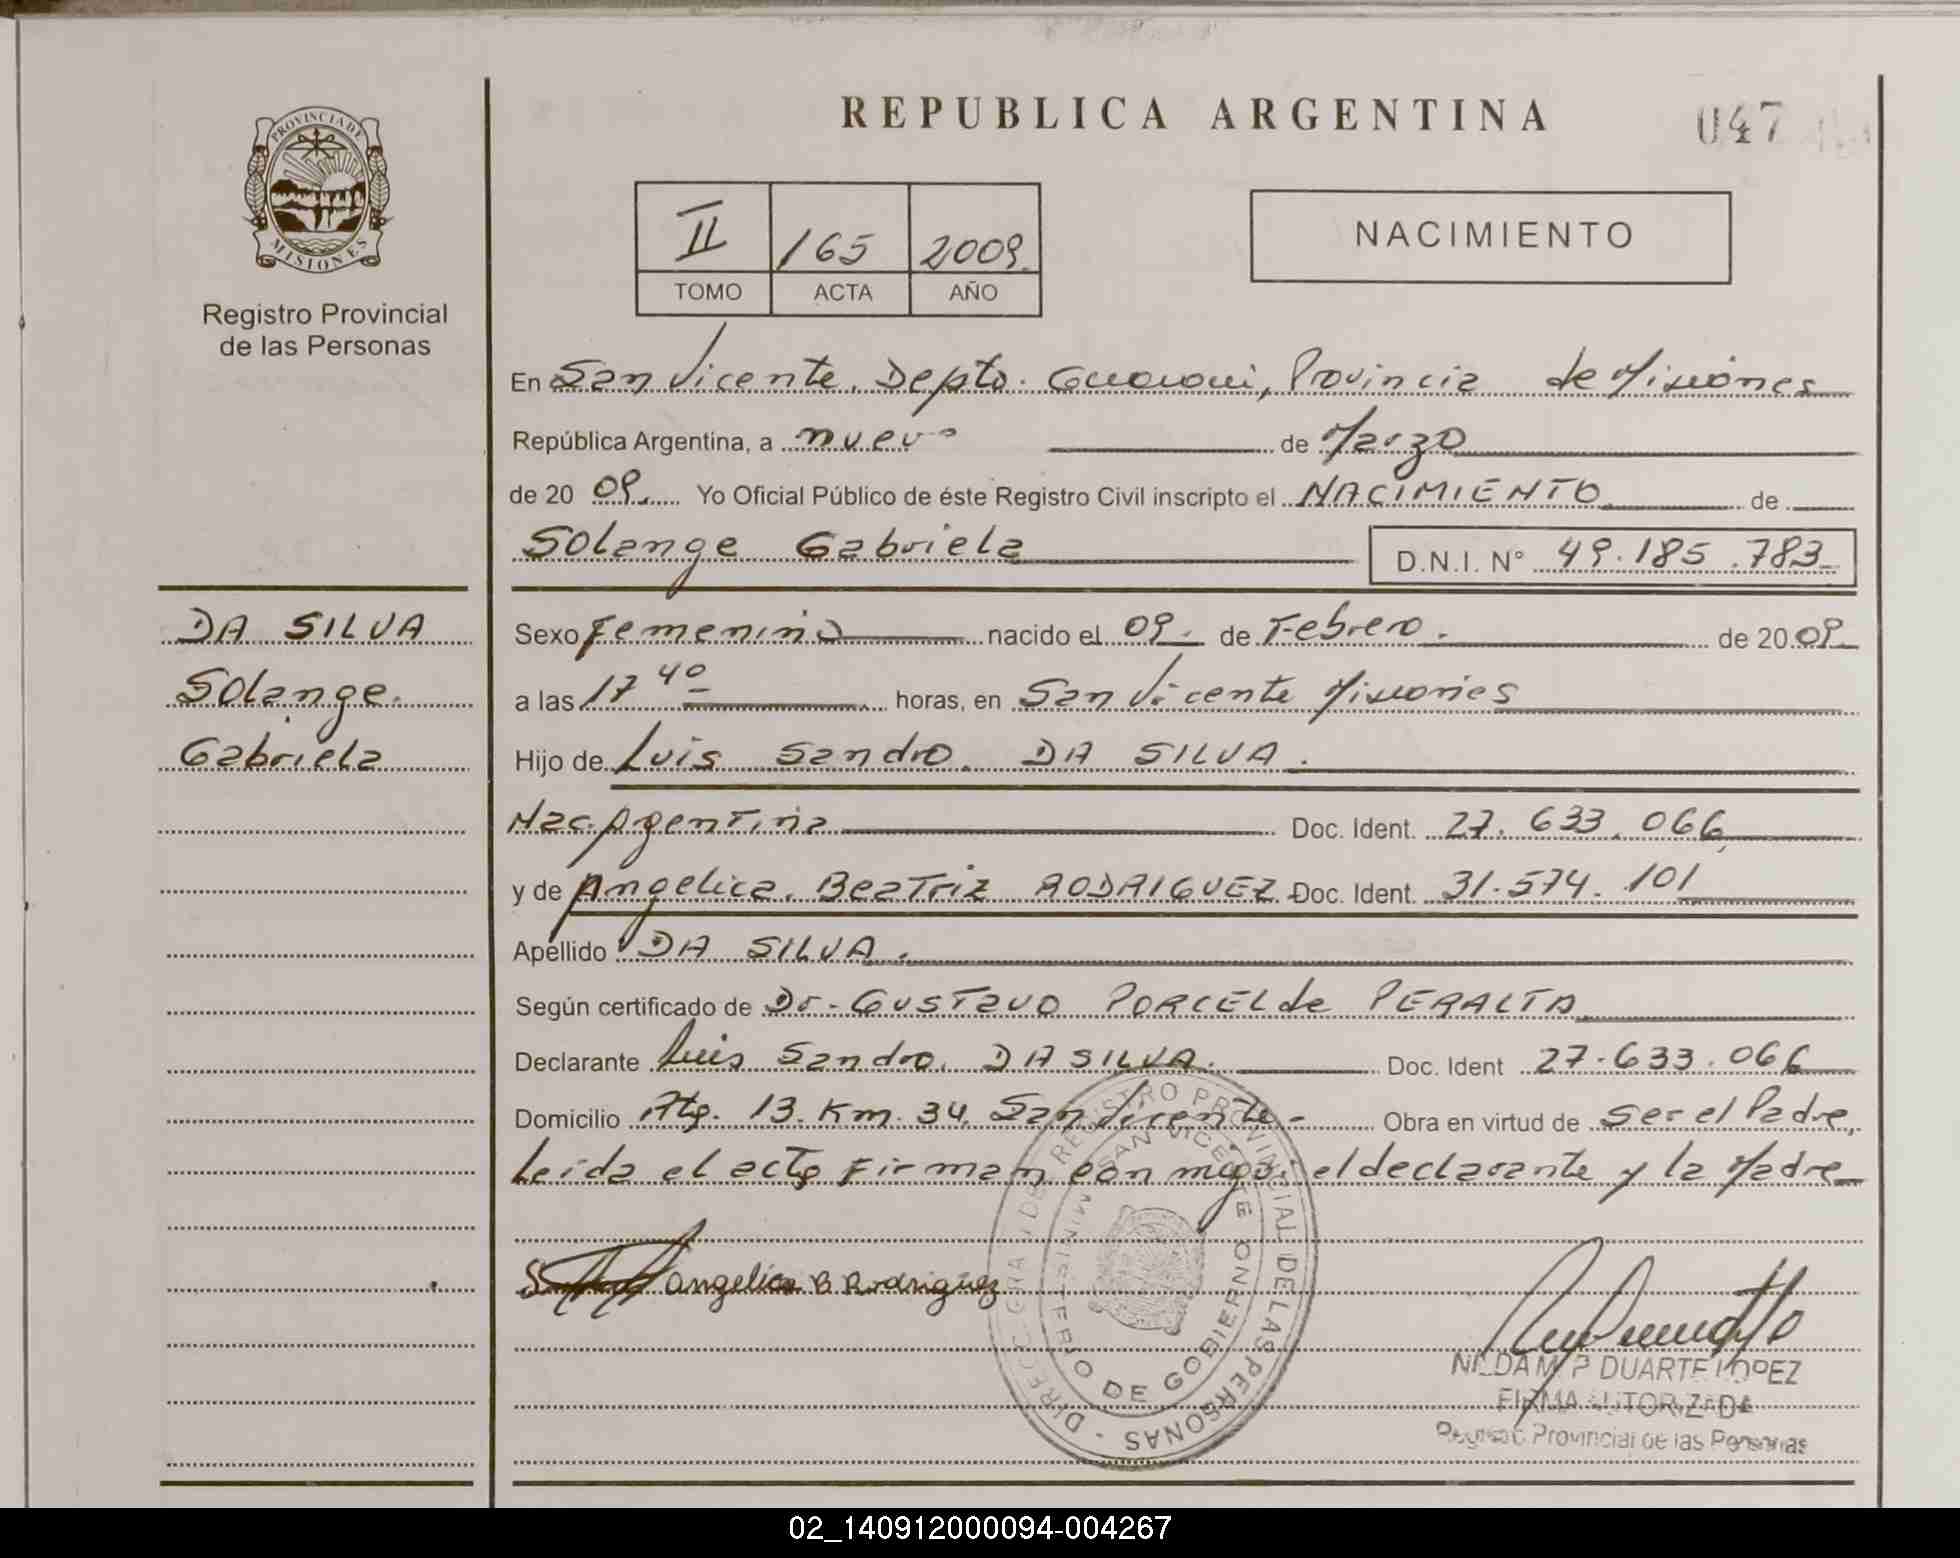 REPUBLICA ARGENTINA
047
PROVINCIA DE MISIONES
Registro Provincial
de las Personas
II 165 2009
TOMO ACTA AÑO
NACIMIENTO
En San Vicente, Depto. Guarani, Provincia de Misiones
República Argentina, a nueve de Marzo
de 20 09. Yo Oficial Público de éste Registro Civil inscripto el NACIMIENTO de
Solange Gabriela D.N.I. N° 49.185.783
DA SILVA
Solange
Gabriela
Sexo Femenino nacido el 09. de Febrero. de 20 09
a las 17 40 horas, en San Vicente Misiones
Hijo de Luis Sandro. DA SILVA.
Nac. Argentina Doc. Ident. 27.633.066
y de Angelica. Beatriz RODRIGUEZ Doc. Ident. 31.574.101
Apellido DA SILVA.
Según certificado de Dr. Gustavo PORCEL de PERALTA
Declarante Luis Sandro. DA SILVA. Doc. Ident 27.633.066
Domicilio 13. Km. 34. San Vicente - Obra en virtud de ser el Padre,
Leida el acta Firman con migo: el declarante y la Madre
angelica B Rodriguez
DIRECC. GRAL DEL REGISTRO PROVINCIAL DE LAS PERSONAS -
SAN VICENTE
MINISTERIO DE GOBIERNO
NILDA M. P DUARTE LOPEZ
FIRMA AUTORIZADA
Registro Provincial de las Personas
02_140912000094-004267